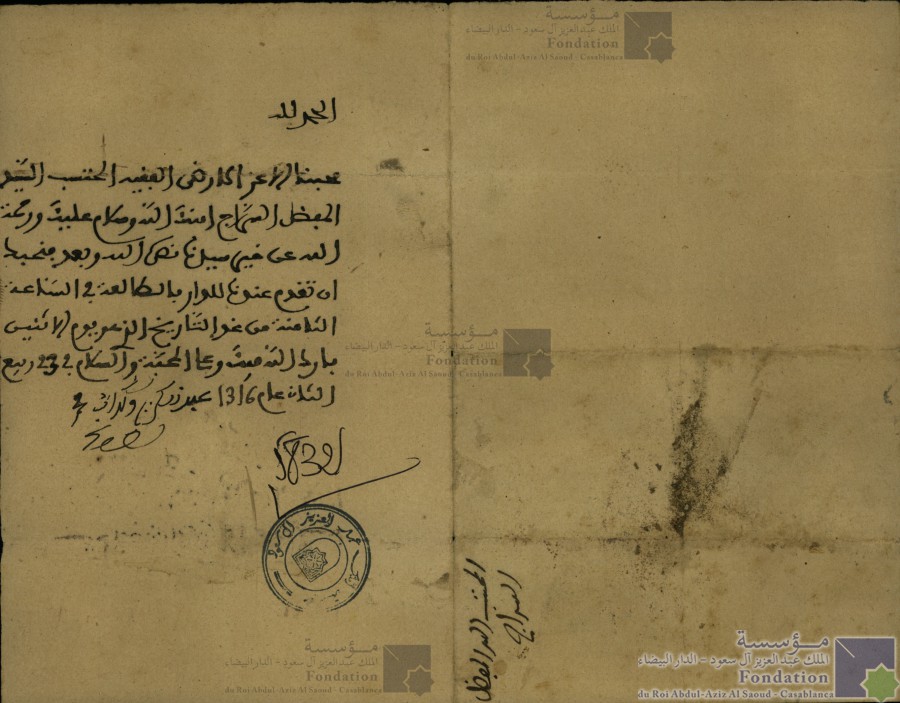 الحمد لله
محبنا الاعز الارضى الفقيه المحتسب السيد
المفضل السراج امنك الله وسلام عليك ورحمة
الله عن خير سيدنا نصره الله وبعد فنحبك
ان تقدم عندنا للدار بالطالعة في الساعة
الثامنة من غد التاريخ الذي هو يوم الاثنين
بارك الله فيك وعلى المحبة والسلام في 23 ربيع
الثاني عام 1316
1832
عبد العزيز آل سعود
المحتسب السيد المفضل
السراج
مؤسسة
الملك عبد العزيز آل سعود - الدار البيضاء
Fondation
du Roi Abdul-Aziz Al Saoud - Casablanca
مؤسسة
الملك عبد العزيز آل سعود - الدار البيضاء
Fondation
du Roi Abdul-Aziz Al Saoud - Casablanca
مؤسسة
الملك عبد العزيز آل سعود - الدار البيضاء
Fondation
du Roi Abdul-Aziz Al Saoud - Casablanca
مؤسسة
الملك عبد العزيز آل سعود - الدار البيضاء
Fondation
du Roi Abdul-Aziz Al Saoud - Casablanca